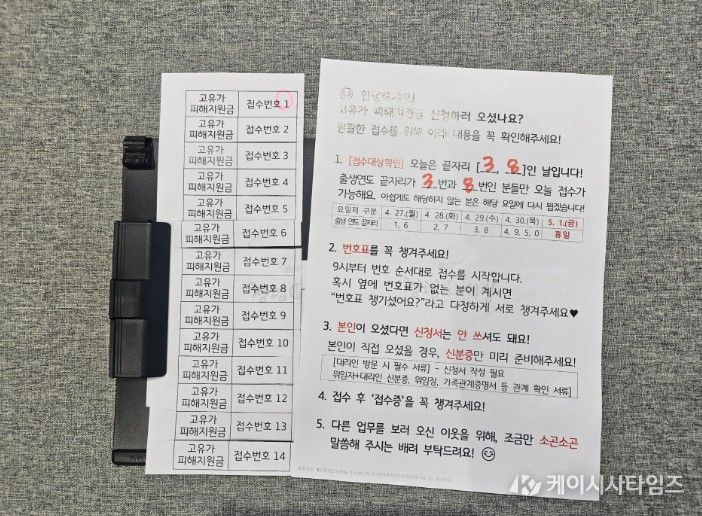 고유가 피해지원금 접수번호 1
고유가 피해지원금 접수번호 2
고유가 피해지원금 접수번호 3
고유가 피해지원금 접수번호 4
고유가 피해지원금 접수번호 5
고유가 피해지원금 접수번호 6
고유가 피해지원금 접수번호 7
고유가 피해지원금 접수번호 8
고유가 피해지원금 접수번호 9
고유가 피해지원금 접수번호 10
고유가 피해지원금 접수번호 11
고유가 피해지원금 접수번호 12
고유가 피해지원금 접수번호 13
고유가 피해지원금 접수번호 14
고유가 신청하러 오셨나요?
원활한 접수를 위해 아래 내용을 꼭 확인해주세요!
1. [접수대상확인] 오늘은 끝자리 [ 3, 8 ]인 날입니다!
출생연도 끝자리가 3 번과 8 번인 분들만 오늘 접수가
가능해요. 아쉽게도 해당하지 않는 분은 해당 요일에 다시 뵙겠습니다!
요일제 구분 4. 27.(월) 4. 28.(화) 4. 29.(수) 4. 30.(목) 5. 1.(금)
출생 연도 끝자리 1, 6 2, 7 3, 8 4, 9, 5, 0 휴일
2. 번호표를 꼭 챙겨주세요!
9시부터 번호 순서대로 접수를 시작합니다.
혹시 옆에 번호표가 없는 분이 계시면
"번호표 챙기셨어요?"라고 다정하게 서로 챙겨주세요♥
3. 본인이 오셨다면 신청서는 안 쓰셔도 돼요!
본인이 직접 오셨을 경우, 신분증만 미리 준비해주세요!
[대리인 방문 시 필수 서류] - 신청서 작성 필요
위임자+대리인 신분증, 위임장, 가족관계증명서 등 관계 확인 서류]
4. 접수 후 '접수증'을 꼭 챙겨주세요!
5. 다른 업무를 보러 오신 이웃을 위해, 조금만 소곤소곤
말씀해 주시는 배려 부탁드려요!
케이시사타임즈